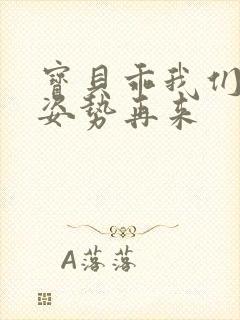 寶貝乖我们
姿勢再来
A落落